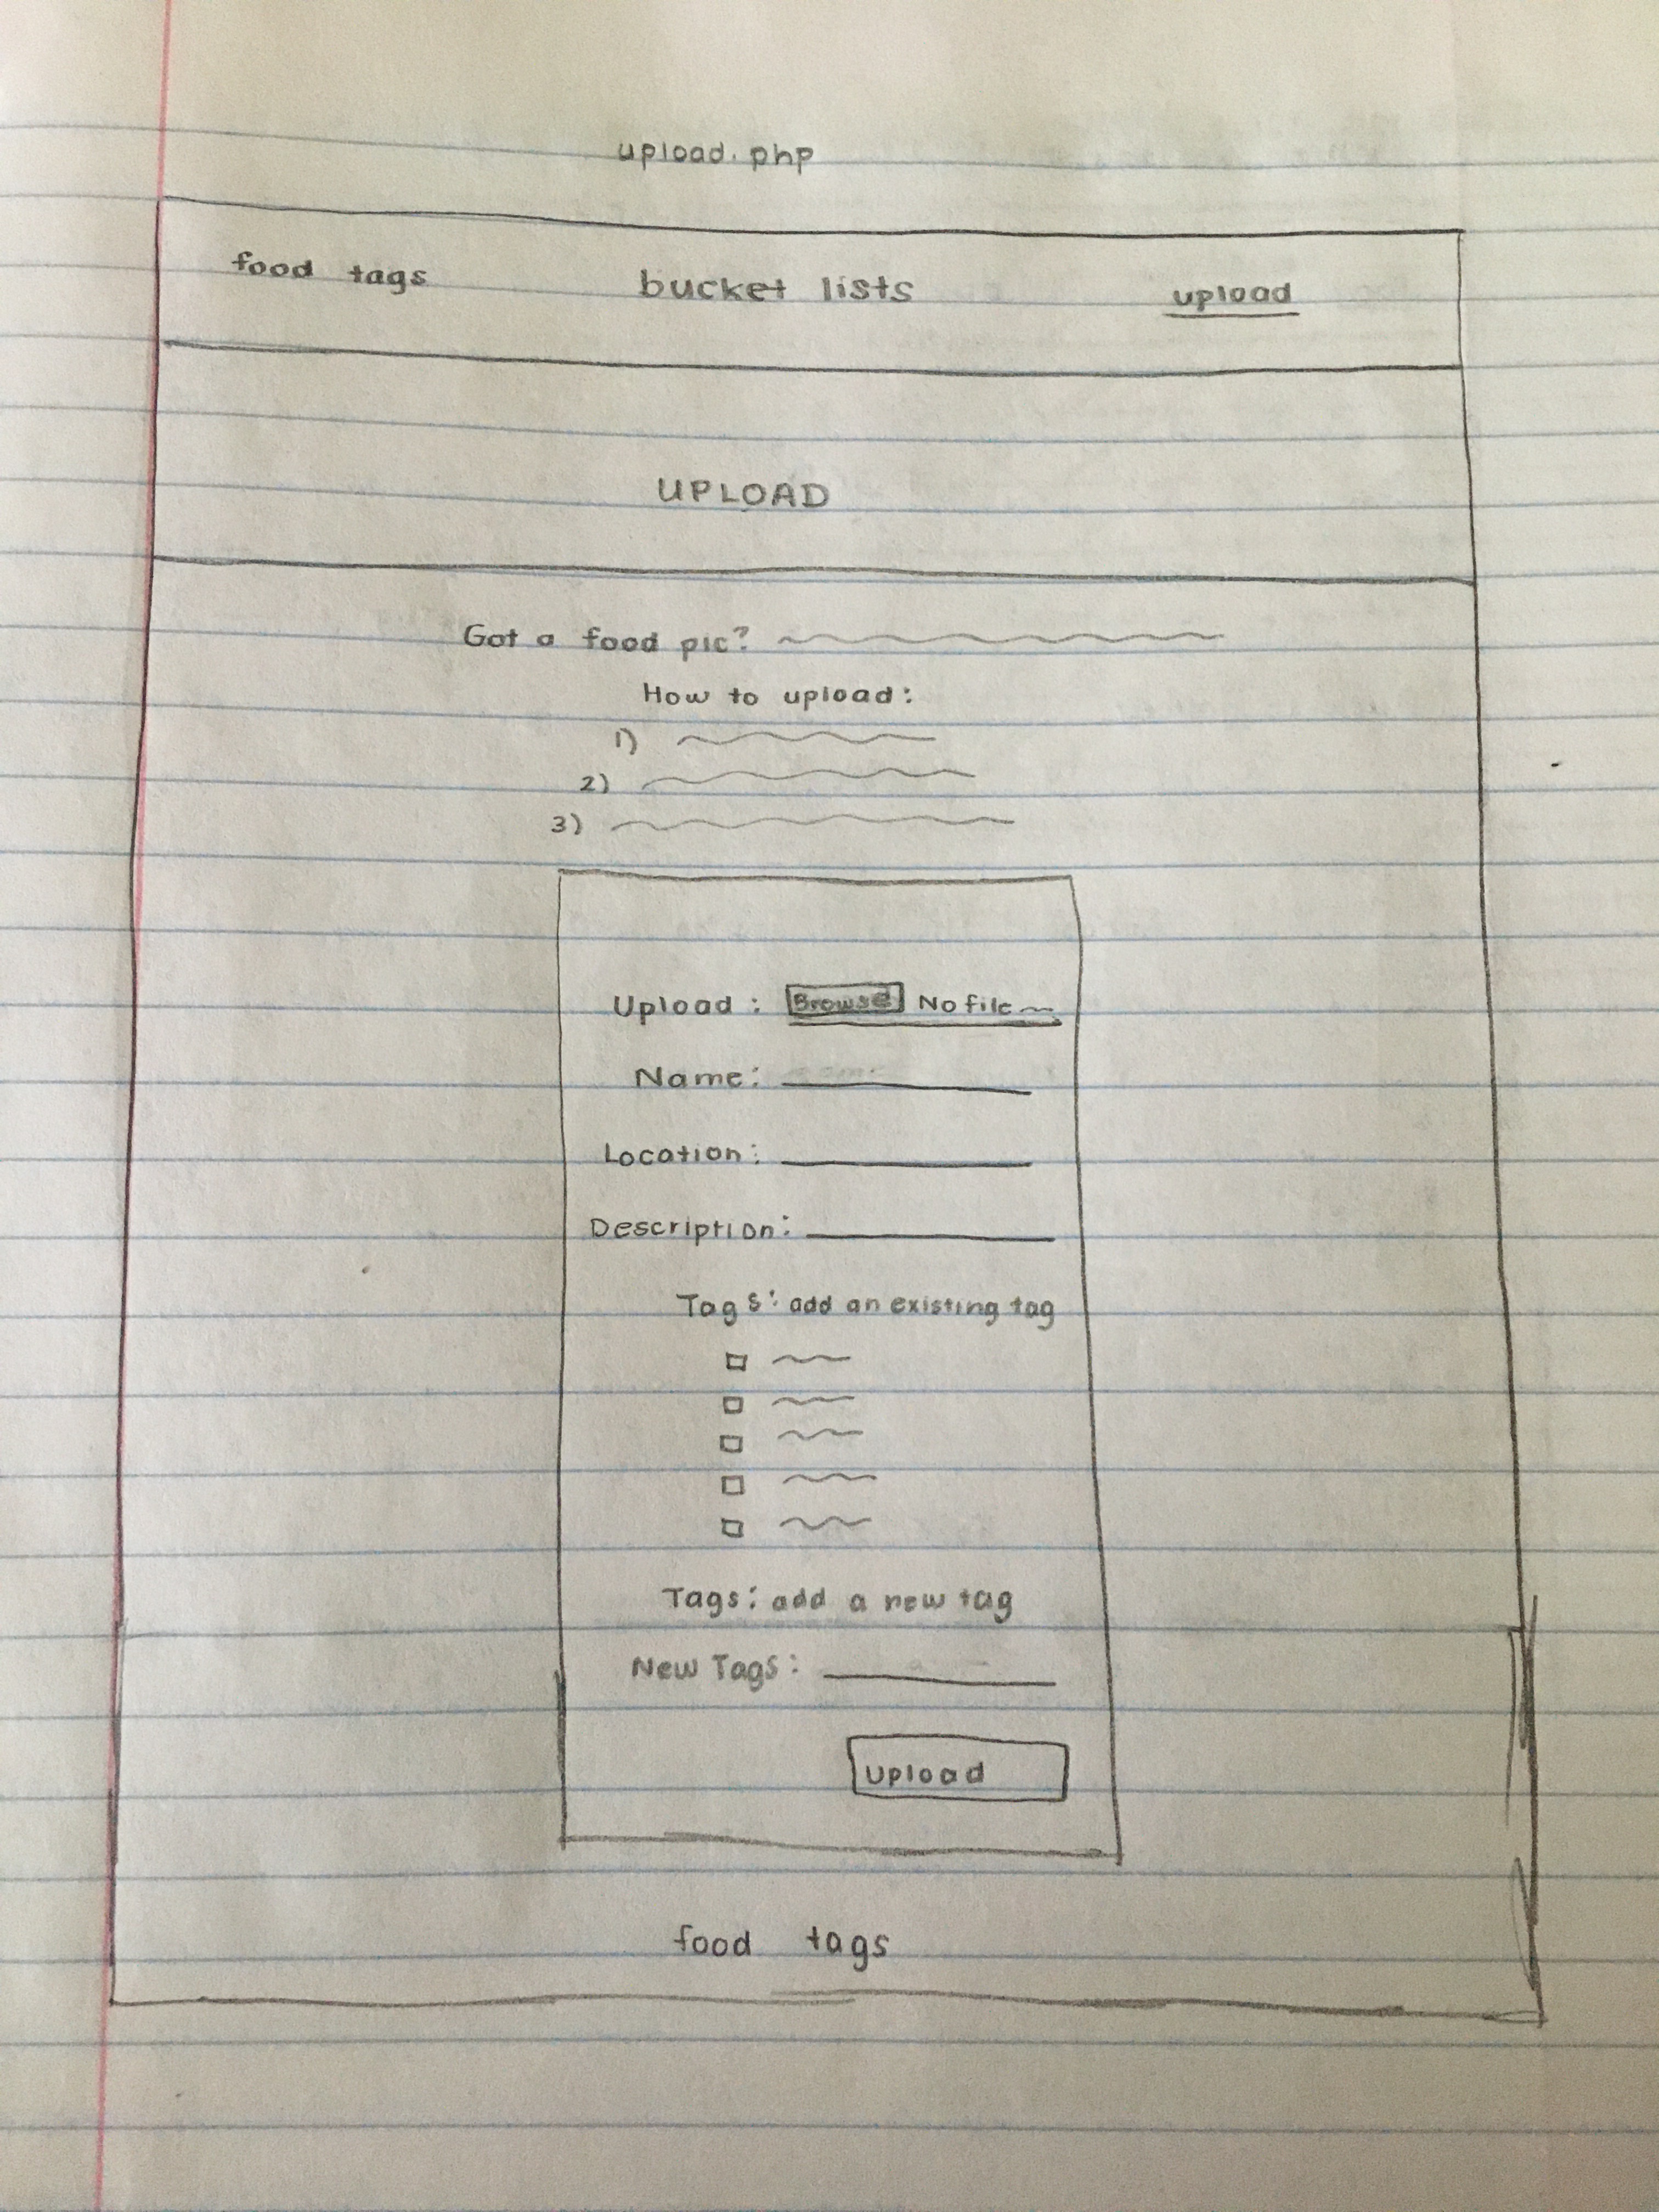 upload.php
food tags bucket lists upload
UPLOAD
Got a food pic?
How to upload:
1)
2)
3)
Upload: Browse No file
Name:
Location:
Description:
Tags: add an existing tag
Tags: add a new tag
New Tags:
Upload
food tags